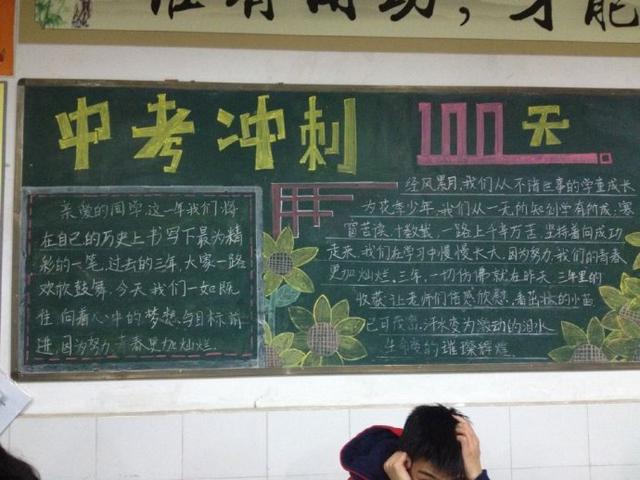 有
动，才能
中考冲刺 100天
亲爱的同学，这一年我们将
在自己的历史上书写下最为精
彩的一笔，过去的三年，大家一路
欢欣鼓舞，今天我们一如既
往，向着心中的梦想，与目标前
进，因为努力，青春更加灿烂。
经风黑月，我们从不谙世事的学童成长
为花季少年，我们从一无所知到学有所成；寒
窗苦读，十数载，一路上千辛万苦，坚持着向成功
走来，我们在学习中慢慢长大，因为努力，我们的青春
更加灿烂，三年，一切仿佛就在昨天，三年里的
收获让老师们倍感欣慰，看茁壮的小苗
已可茂密，汗水变为激动的泪水
生命变的璀璨辉煌